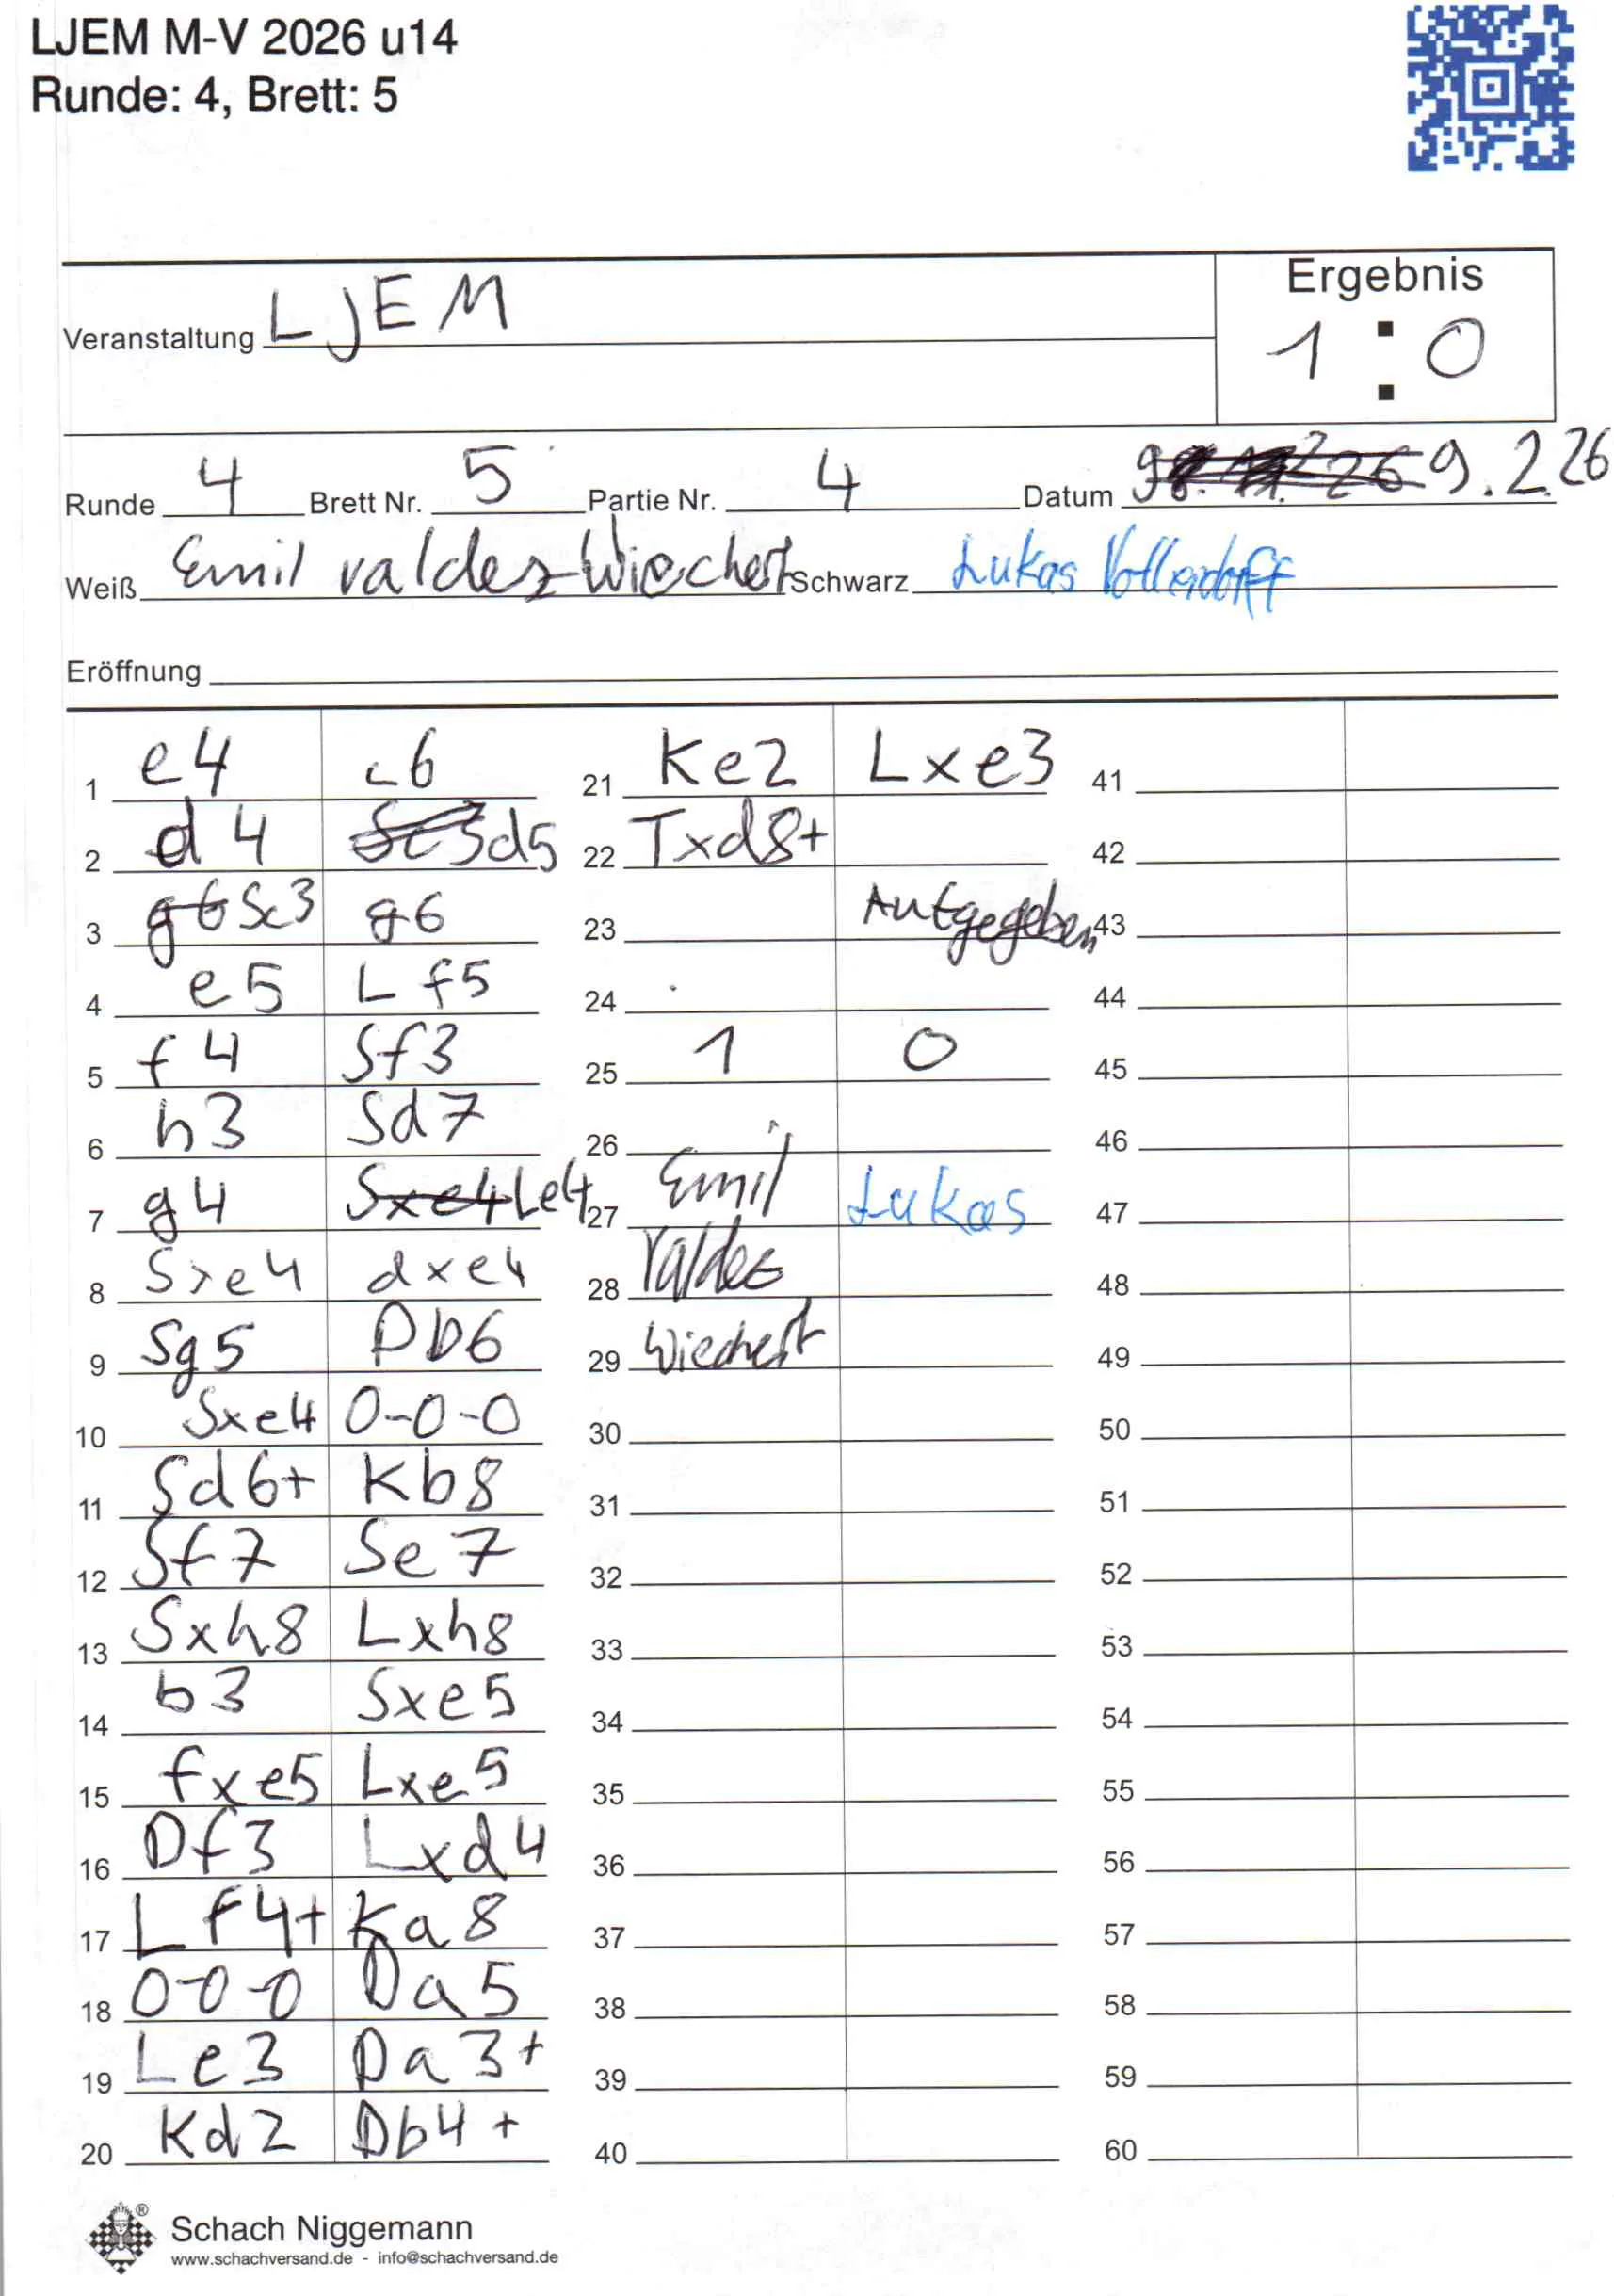 LJEM M-V 2026 u14
Runde: 4, Brett: 5
Ergebnis
Veranstaltung LJEM
1 : 0
Runde 4 Brett Nr. 5 Partie Nr. 4 Datum 9.2.26
Weiß Emil valdez Wiechert Schwarz Lukas
Eröffnung
1 e4 c6 21 Ke2 Lxe3 41
2 d4 d5 22 Txd8+ 42
3 Sc3 g6 23 Aufgegeben 43
4 e5 Lf5 24 44
5 f4 Sf3 25 1 0 45
6 h3 Sd7 26 46
7 g4 Le4 27 Emil Lukas 47
8 Sxe4 dxe4 28 Valdez 48
9 Sg5 Db6 29 Wiechert 49
10 Sxe4 0-0-0 30 50
11 Sd6+ Kb8 31 51
12 Sf7 Se7 32 52
13 Sxh8 Lxh8 33 53
14 b3 Sxe5 34 54
15 fxe5 Lxe5 35 55
16 Df3 Lxd4 36 56
17 Lf4+ Ka8 37 57
18 0-0-0 Da5 38 58
19 Le3 Da3+ 39 59
20 Kd2 Db4+ 40 60
Schach Niggemann
www.schachversand.de - info@schachversand.de